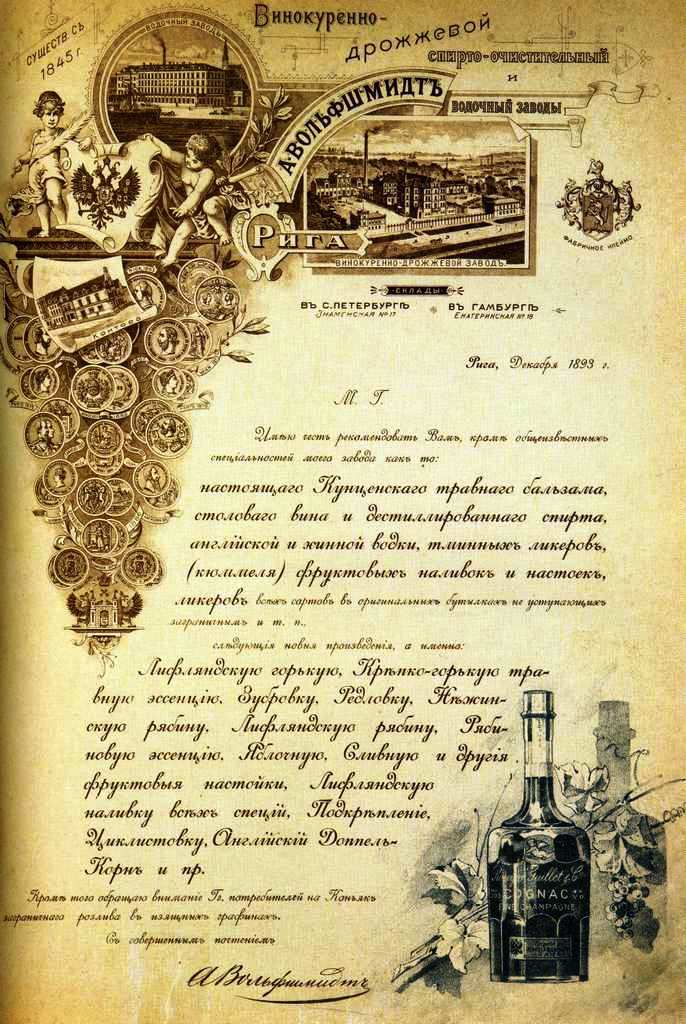 СУЩЕСТВ. СЪ
1845 Г.
ВОДОЧНЫЙ ЗАВОДЪ
Винокуренно-
дрожжевой
спирто-очистительный
и
водочный заводы
А. ВОЛЬФШМИДТЪ
РИГА
ВИНОКУРЕННО-ДРОЖЖЕВОЙ ЗАВОДЪ.
ФАБРИЧНОЕ КЛЕЙМО.
Контора
СКЛАДЫ
ВЪ С.ПЕТЕРБУРГѢ
Знаменская № 17
ВЪ ГАМБУРГѢ
Екатеринская № 18
Рига, Декабря 1893 г.
М. Г.
Имѣю честь рекомендовать Вамъ, кромѣ общеизвѣстныхъ
спеціальностей моего завода какъ то:
настоящаго Кунценскаго травнаго бальзама,
столоваго вина и дестиллированнаго спирта,
англійской и жинной водки, тминныхъ ликеровъ,
(кюммеля) фруктовыхъ наливокъ и настоекъ,
ликеровъ всѣхъ сортовъ въ оригинальныхъ бутылкахъ не уступающихъ
заграничнымъ и т. п.,
слѣдующія новыя произведенія, а именно:
Лифляндскую горькую, Крѣпко-горькую тра-
вную эссенцію, Зубровку, Редловку, Нѣжин-
скую рябину, Лифляндскую рябину, Ряби-
новую эссенцію, Яблочную, Сливную и другія
фруктовыя настойки, Лифляндскую
наливку всѣхъ спецій, Подкрѣпленіе,
Циклистовку, Англійскій Доппель-
Корнъ и пр.
Кромѣ того обращаю вниманіе Гг. потребителей на Коньякъ
заграничнаго розлива въ изящныхъ графинахъ.
Съ совершеннымъ почтеніемъ
А Вольфшмидтъ
Guillet & Co
COGNAC
FINE CHAMPAGNE